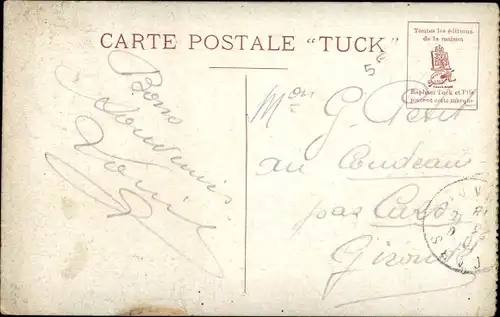 CARTE POSTALE "TUCK"
Toutes les éditions
de la maison
Raphael Tuck et Fils
portent cette marque
5c
Bons
Souvenirs
Louis
Mon G. Petit
au Coudeau
par
Gironde